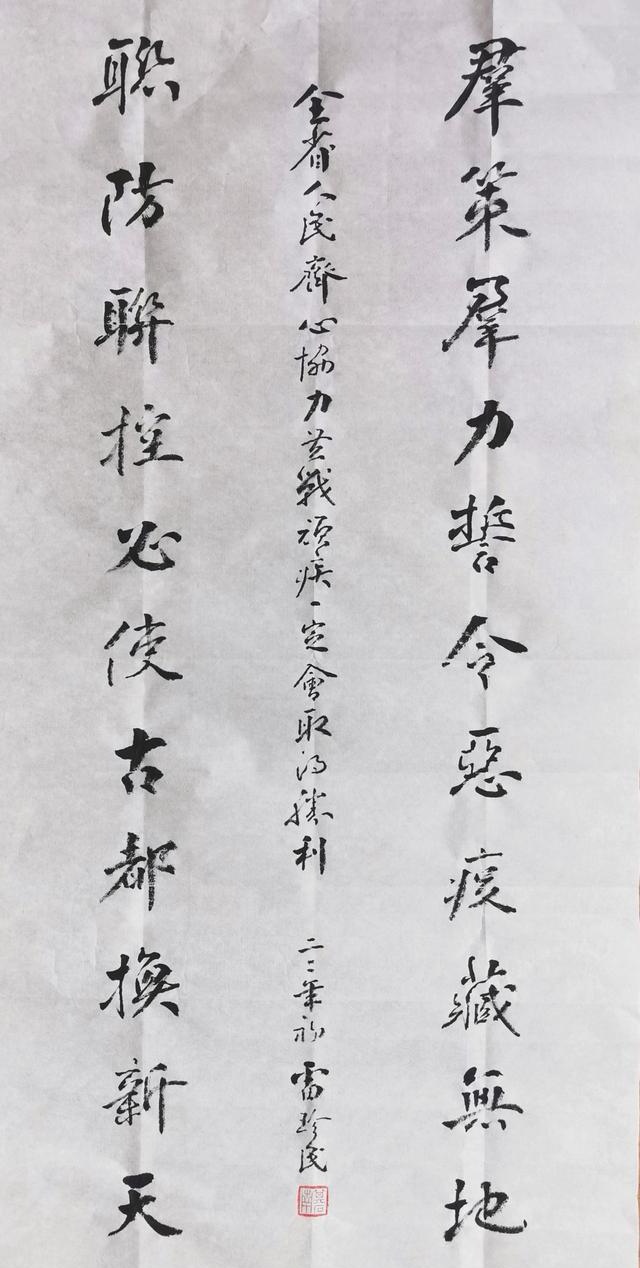 羣策羣力誓令惡疾藏無地
全省人民齊心協力共戰頑疾一定會取得勝利 二二年初 雷珍民
聯防聯控必使古都換新天